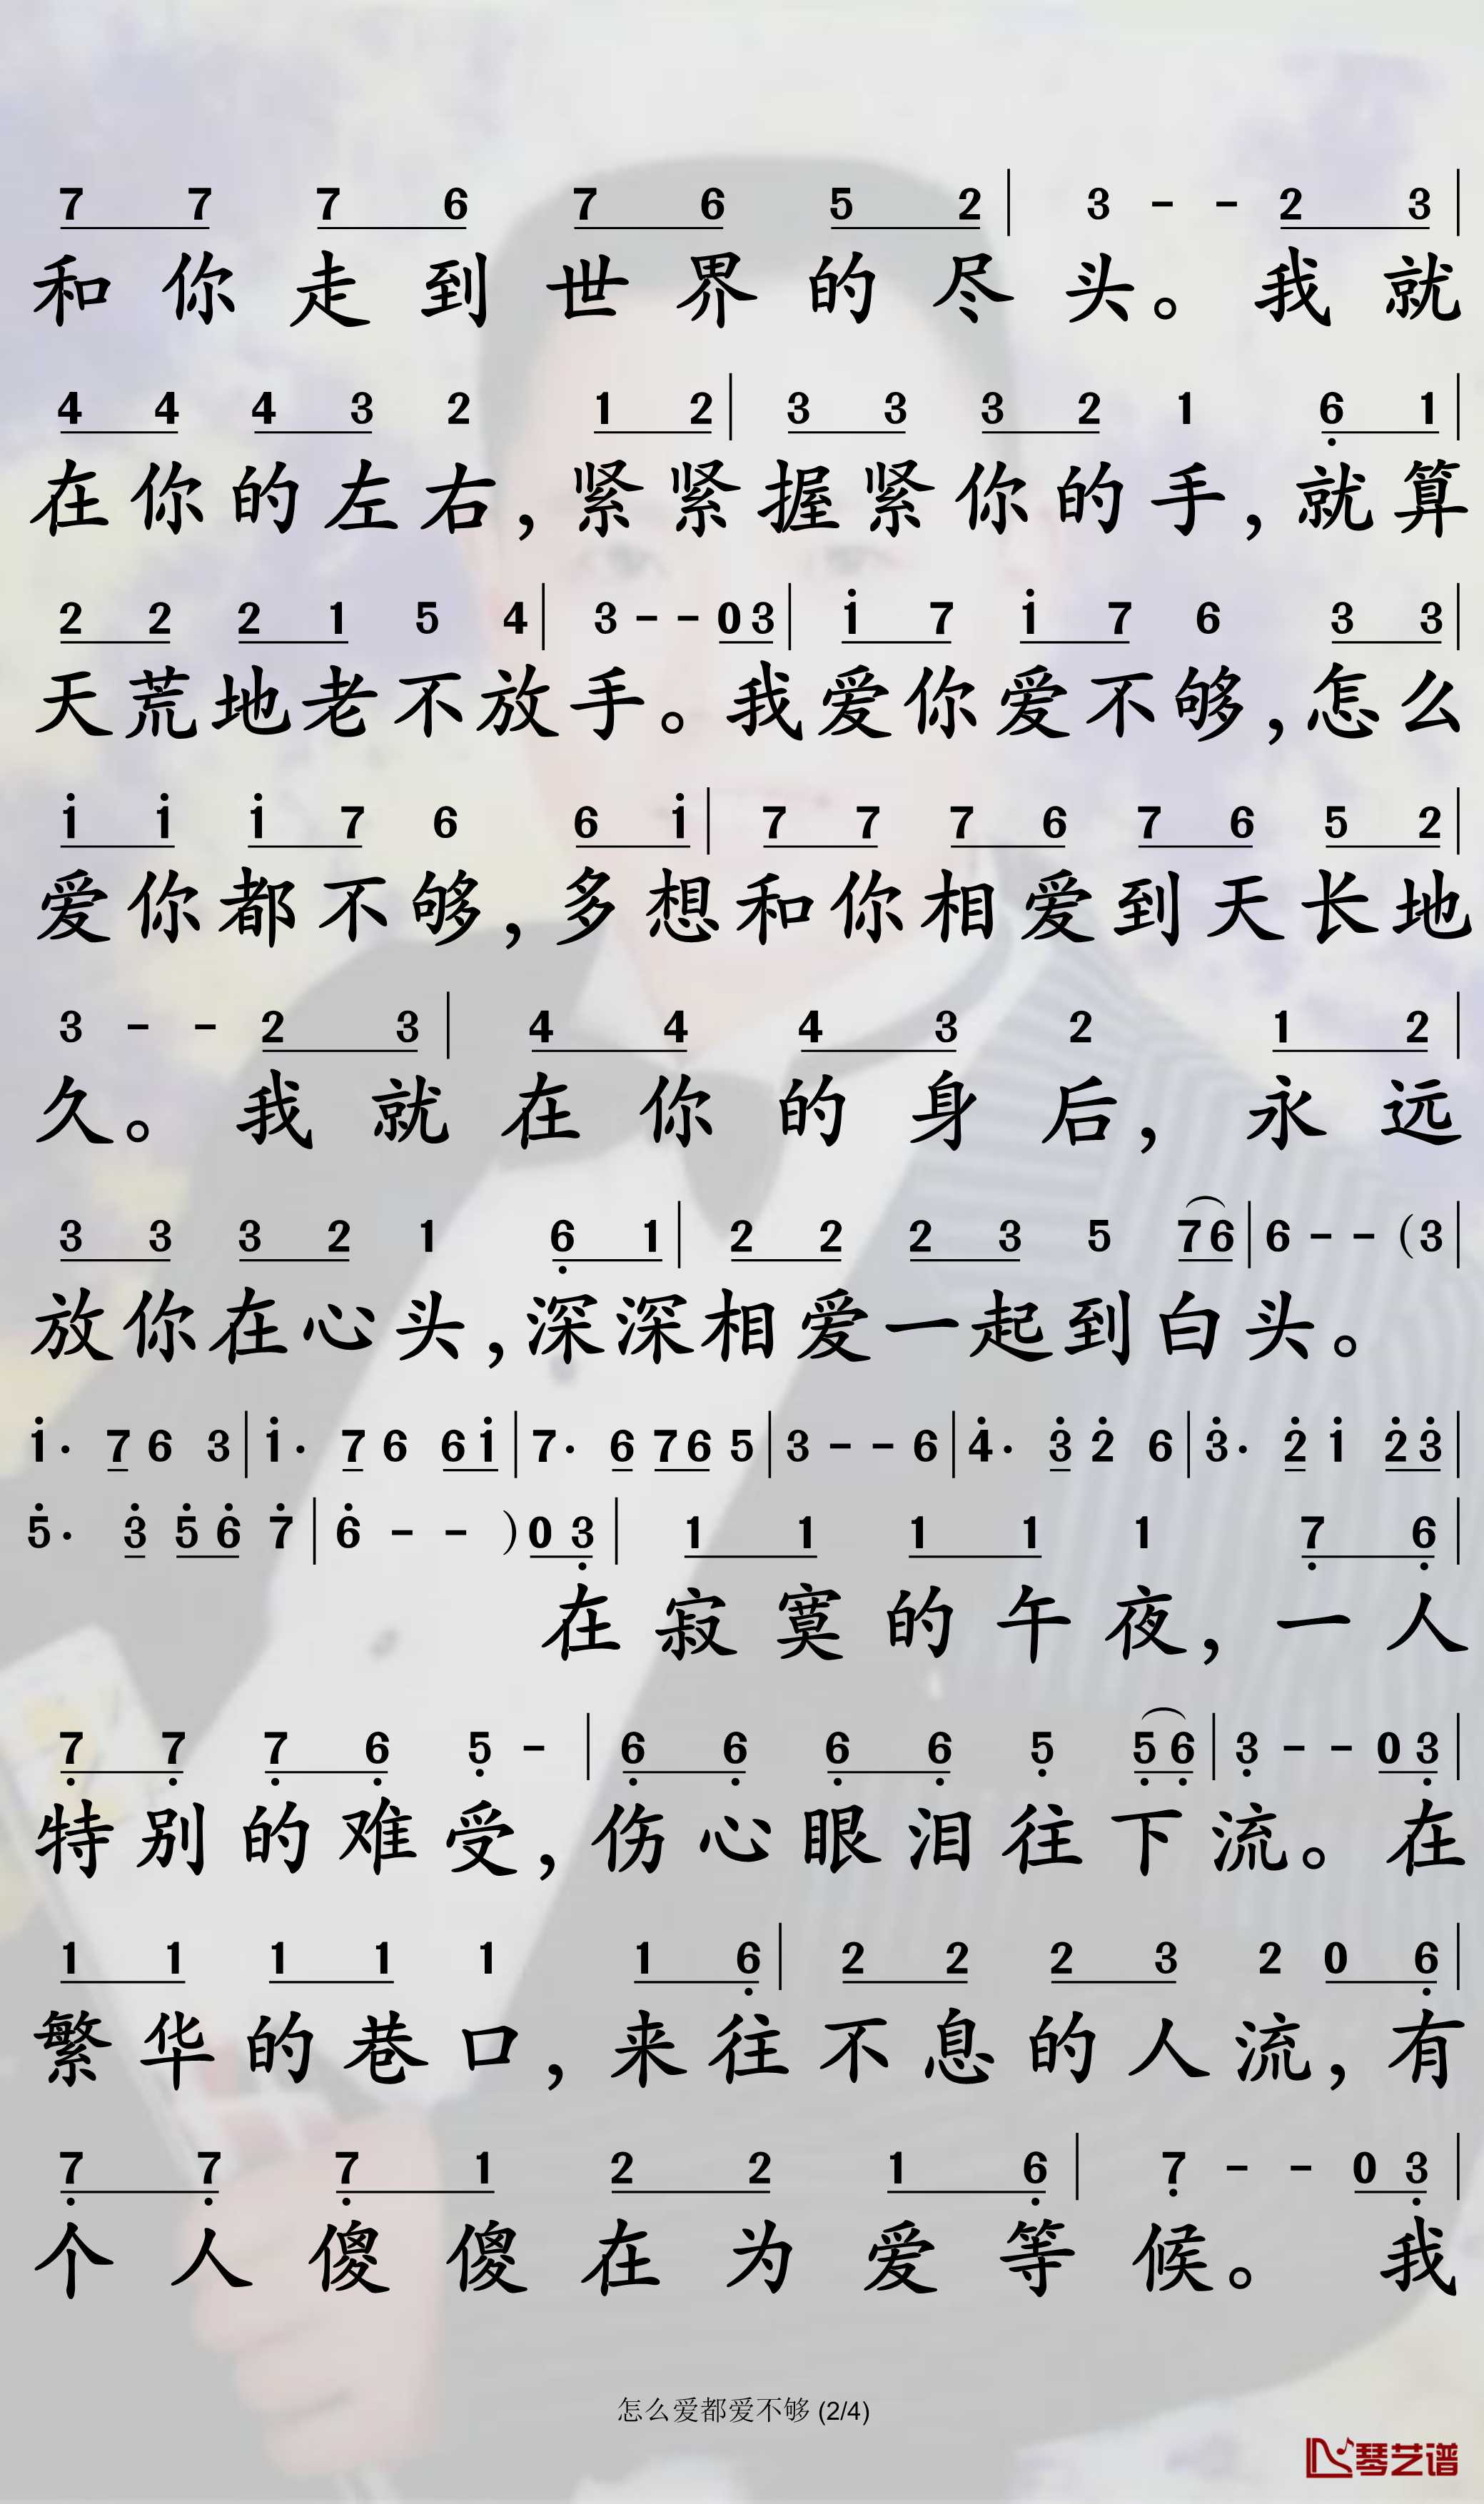 7 7 7 6 7 6 5 2 | 3 - - 2 3 |
和你走到世界的尽头。我就
4 4 4 3 2 1 2 | 3 3 3 2 1 6̣ 1 |
在你的左右,紧紧握紧你的手,就算
2 2 2 1 5 4 | 3 - - 0 3 | i 7 i 7 6 3 3 |
天荒地老不放手。我爱你爱不够,怎么
i i i 7 6 6 i | 7 7 7 6 7 6 5 2 |
爱你都不够,多想和你相爱到天长地
3 - - 2 3 | 4 4 4 3 2 1 2 |
久。我就在你的身后,永远
3 3 3 2 1 6̣ 1 | 2 2 2 3 5 7 6 | 6 - - (3 |
放你在心头,深深相爱一起到白头。
i· 7 6 3 | i· 7 6 6 i | 7· 6 7 6 5 | 3 - - 6 | 4̇· 3̇ 2̇ 6 | 3̇· 2̇ i 2̇ 3̇ |
5̇· 3̇ 5̇ 6̇ 7̇ | 6̇ - - ) 0 3̣ | 1 1 1 1 1 7̣ 6̣ |
在寂寞的午夜,一人
7̣ 7̣ 7̣ 6̣ 5̣ - | 6̣ 6̣ 6̣ 6̣ 5̣ 5̣ 6̣ | 3̣ - - 0 3̣ |
特别的难受,伤心眼泪往下流。在
1 1 1 1 1 1 6̣ | 2 2 2 3 2 0 6̣ |
繁华的巷口,来往不息的人流,有
7̣ 7̣ 7̣ 1 2 2 1 6̣ | 7̣ - - 0 3̣ |
个人傻傻在为爱等候。我
怎么爱都爱不够 (2/4)
琴艺谱